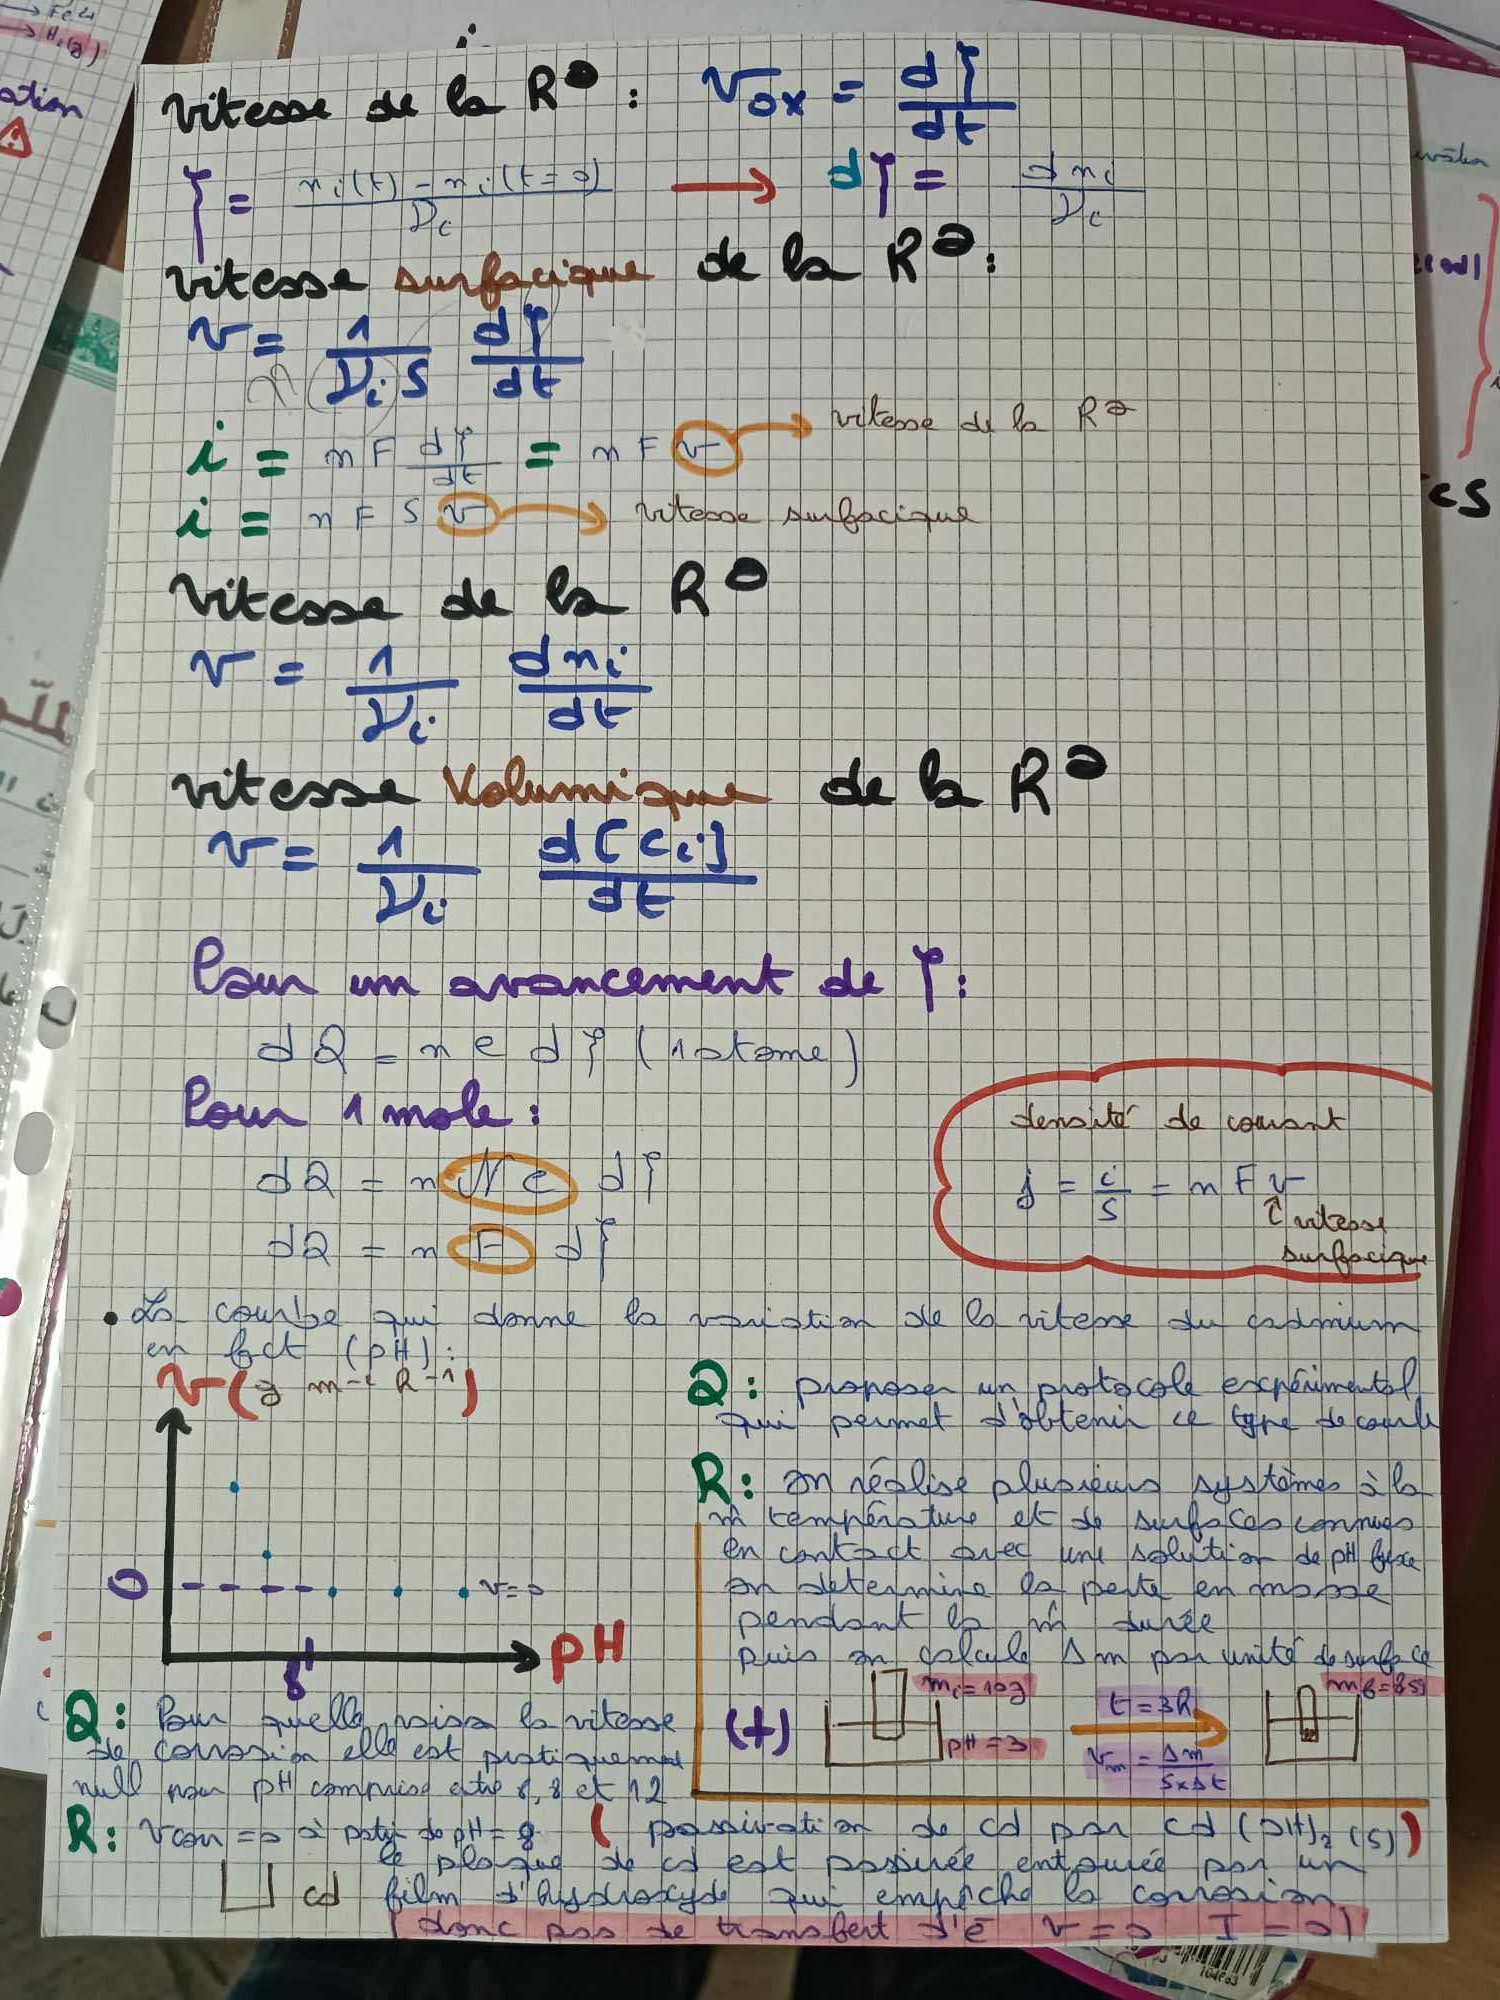 vitesse de la R° : v_ox = dξ/dt
ξ = (n_i(t) - n_i(t=0))/ν_i → dξ = dn_i/ν_i
vitesse surfacique de la R° :
v = 1/(ν_i S) dξ/dt
i = n F dξ/dt = n F v → vitesse de la R°
i = n F S v → vitesse surfacique
vitesse de la R°
v = 1/ν_i dn_i/dt
vitesse volumique de la R°
v = 1/ν_i d[C_i]/dt
Pour un avancement de ξ :
dQ = n e dξ (1 atome)
Pour 1 mole :
dQ = n N e dξ
dQ = n F dξ
densité de courant
j = i/S = n F v
vitesse
surfacique
• La courbe qui donne la variation de la vitesse du cadmium
en fct (pH) :
v (g m⁻² h⁻¹)
0
v=0
8
pH
Q : proposer un protocole expérimental
qui permet d'obtenir ce type de courbe
R : on réalise plusieurs systèmes à la
m̂ température et de surfaces connues
en contact avec une solution de pH fixe
on determine la perte en masse
pendant la m̂ durée
puis on calcule Δm par unité de surface
(+)
m_i = 10g
pH = 3
t = 3h
v_m = Δm/(S×Δt)
Q : Pour quelle raison la vitesse
de corrosion elle est pratiquement
null pour pH comprise entre 8,8 et 12
R : v corr = 0 à partir de pH = 8 (passivation de cd par cd(OH)₂(s))
la plaque de cd est passivée entourée par un
cd film d'hydroxyde qui empêche la corrosion
(donc pas de transfert d'ē v = 0 I = 0)
104663